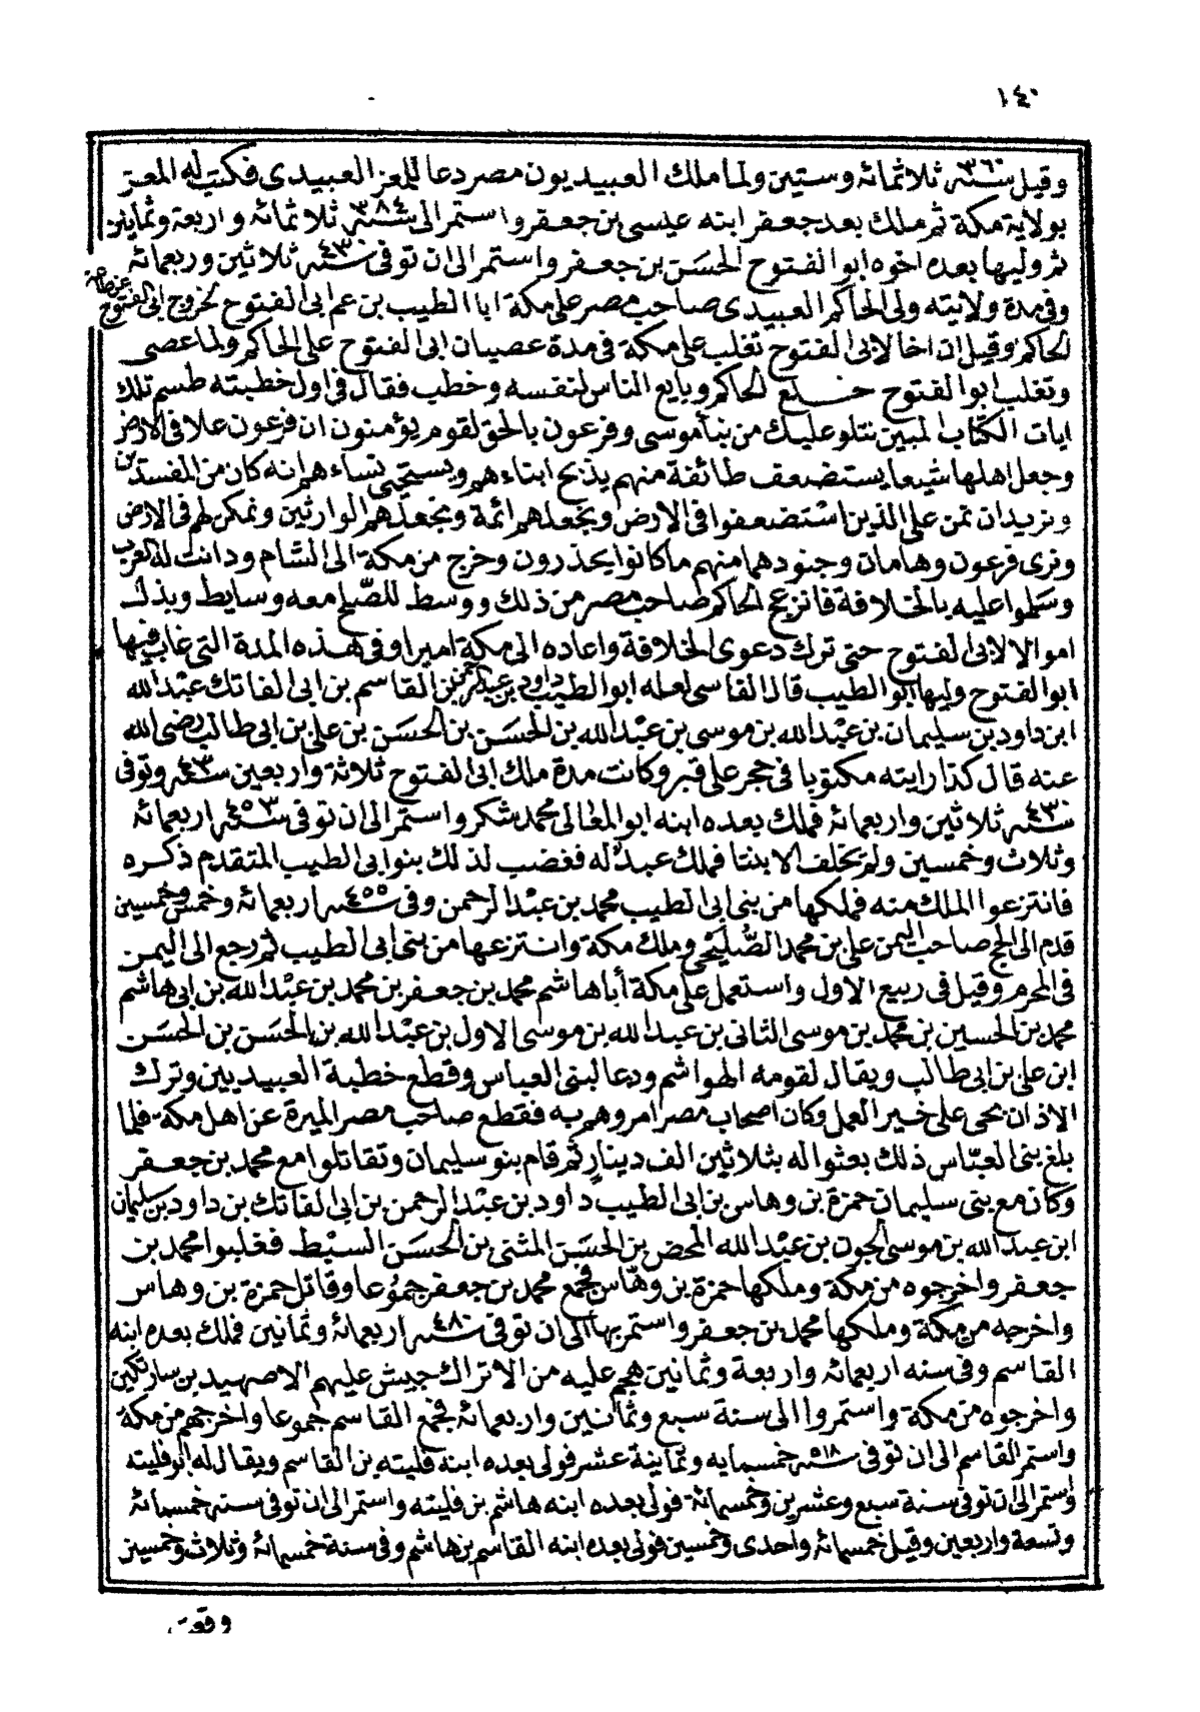 ١٤٠
وقيل سنة ٣٦٠ ثلاثمائة وستين ولما ملك العبيديون مصر دعا للمعز العبيدى فكتب له المعز
بولاية مكة ثم ملك بعد جعفر ابنه عيسى بن جعفر واستمر الى سنة ٣٨٤ ثلاثمائة واربعة وثمانين
ثم وليها بعده اخوه ابو الفتوح الحسن بن جعفر واستمر الى ان توفى سنة ٤٣٠ ثلاثين وربعمائة
وفى مدة ولايته ولى الحاكم العبيدى صاحب مصر على مكة ابا الطيب بن عم ابى الفتوح لخروج ابى الفتوح عن طاعة
الحاكم وقيل ان اخا لابى الفتوح تغلب على مكة فى مدة عصيان ابى الفتوح على الحاكم ولما عصى
وتغلب ابو الفتوح خلع الحاكم وبايع الناس لنفسه وخطب فقال فى اول خطبته طسم تلك
ايات الكتاب المبين نتلو عليك من نبأ موسى وفرعون بالحق لقوم يؤمنون ان فرعون علا فى الارض
وجعل اهلها شيعا يستضعف طائفة منهم يذبح ابناءهم ويستحيى نساءهم انه كان من المفسدين
ونريد ان نمن على الذين استضعفوا فى الارض ونجعلهم ائمة ونجعلهم الوارثين ونمكن لهم فى الارض
ونرى فرعون وهامان وجنودهما منهم ما كانوا يحذرون وخرج من مكة الى الشام ودانت له العرب
وسلموا عليه بالخلافة فانزعج الحاكم صاحب مصر من ذلك ووسط للصلح معه وسايط وبذل
اموالا لابى الفتوح حتى ترك دعوى الخلافة واعاده الى مكة اميرا وفى هذه المدة التى غاب فيها
ابو الفتوح وليها ابو الطيب قال الفاسى لعله ابو الطيب داود بن عبد الرحمن بن القاسم بن ابى الفاتك عبد الله
ابن داود بن سليمان بن عبد الله بن موسى بن عبد الله بن الحسن بن الحسن بن على بن ابى طالب رضى الله
عنه قال كذا رايته مكتوبا فى حجر على قبر وكانت مدة ملك ابى الفتوح ثلاثة واربعين سنة ٤٣ وتوفى
سنة ٤٣٠ ثلاثين واربعمائة فملك بعده ابنه ابو المعالى محمد شكر واستمر الى ان توفى سنة ٤٥٣ اربعمائة
وثلاث وخمسين ولم يخلف الا بنتا فملك عبد له فغضب لذلك بنو ابى الطيب المتقدم ذكره
فانتزعوا الملك منه فملكها من بنى ابى الطيب محمد بن عبد الرحمن وفى سنة ٤٥٥ اربعمائة وخمس وخمسين
قدم الى الحج صاحب اليمن على بن محمد الصُّلَيْحى وملك مكة وانتزعها من بنى ابى الطيب ثم رجع الى اليمن
فى المحرم وقيل فى ربيع الاول واستعمل على مكة أبا هاشم محمد بن جعفر بن محمد بن عبد الله بن ابى هاشم
محمد بن الحسين بن محمد بن موسى الثانى بن عبد الله بن موسى الاول بن عبد الله بن الحسن بن الحسن
ابن على بن ابى طالب ويقال لقومه الهواشم ودعا لبنى العباس وقطع خطبة العبيديين وترك
الاذان بحى على خير العمل وكان اصحاب مصر امروهم به فقطع صاحب مصر الميرة عن اهل مكة فلما
بلغ بنى العبّاس ذلك بعثوا له بثلاثين الف دينار ثم قام بنو سليمان وتقاتلوا مع محمد بن جعفر
وكان مع بنى سليمان حمزة بن وهاس بن ابى الطيب داود بن عبد الرحمن بن ابى الفاتك بن داود بن سليمان
ابن عبد الله بن موسى الجون بن عبد الله المحض بن الحسن المثنى بن الحسن السبط فغلبوا محمد بن
جعفر واخرجوه من مكة وملكها حمزة بن وهّاس فجمع محمد بن جعفر جموعا وقاتل حمزة بن وهاس
واخرجه من مكة وملكها محمد بن جعفر واستمر بها الى ان توفى سنة ٤٨٠ اربعمائة وثمانين فملك بعده ابنه
القاسم وفى سنه اربعمائه واربعة وثمانين هجم عليه من الاتراك جيش عليهم الاصهبد بن سارتكين
واخرجوه من مكة واستمروا الى سنة سبع وثمانين واربعمائة فجمع القاسم جموعا واخرجهم من مكة
واستمر القاسم الى ان توفى سنة ٥١٨ خمسمايه وثمانية عشر فولى بعده ابنه فليته بن القاسم ويقال له ابو فليته
واستمر الى ان توفى سنة سبع وعشرين وخمسمائة فولى بعده ابنه هاشم بن فليته واستمر الى ان توفى سنه خمسمائة
وتسعة واربعين وقيل خمسمائه واحدى وخمسين فولى بعده ابنه القاسم بن هاشم وفى سنة خمسمائة وثلاث وخمسين
وقعت